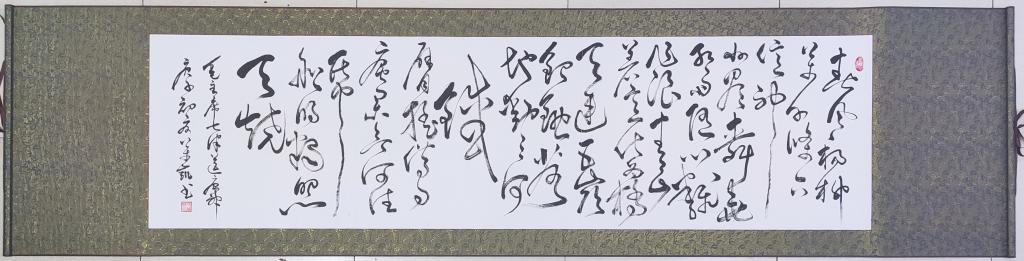 春风杨柳
万千条六
亿神
州尽舜尧
红雨随心翻
作浪青山
着意化为桥
天连五岭
银锄落
地动三河
铁
臂摇借问
瘟君欲何往
纸
船明烛照
天烧
毛主席七律送瘟神
庚子初夏 书